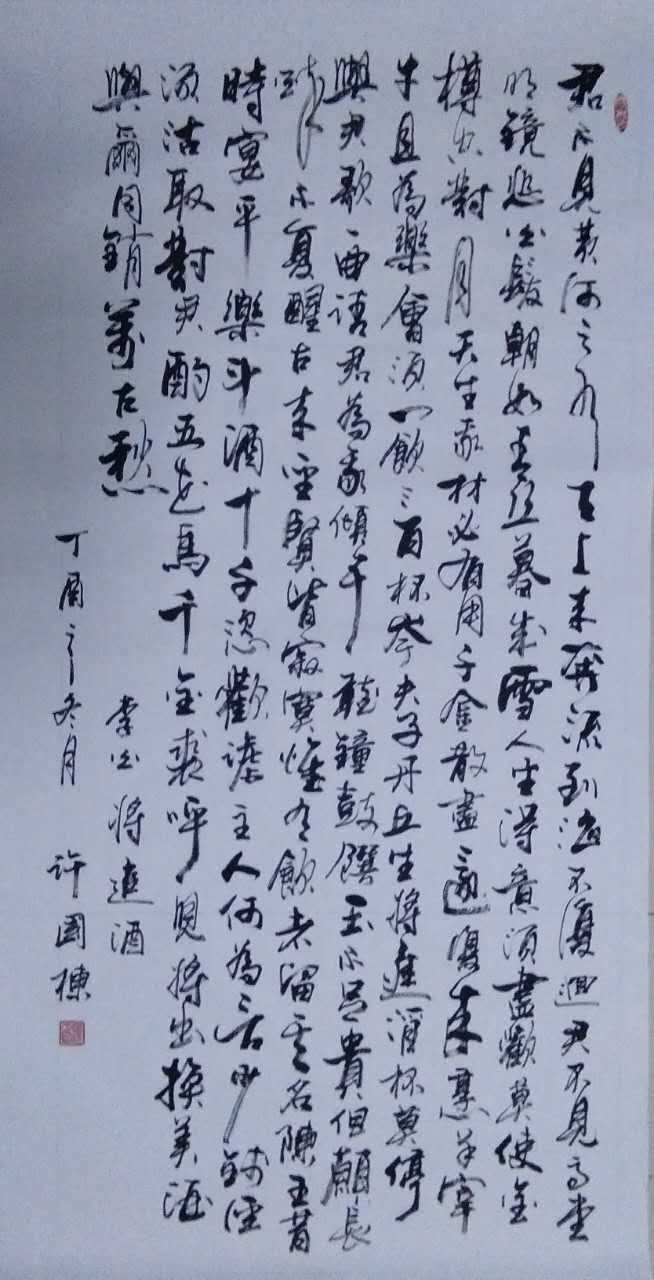 君不見黃河之水天上來奔流到海不復迴君不見高堂
明鏡悲白髮朝如青絲暮成雪人生得意須盡歡莫使金
樽空對月天生我材必有用千金散盡還復來烹羊宰
牛且為樂會須一飲三百杯岑夫子丹丘生將進酒杯莫停
與君歌一曲請君為我傾耳聽鐘鼓饌玉不足貴但願長
醉不復醒古來聖賢皆寂寞惟有飲者留其名陳王昔
時宴平樂斗酒十千恣歡謔主人何為言少錢徑
須沽取對君酌五花馬千金裘呼兒將出換美酒
與爾同銷萬古愁
李白將進酒
丁酉之冬月 許國棟